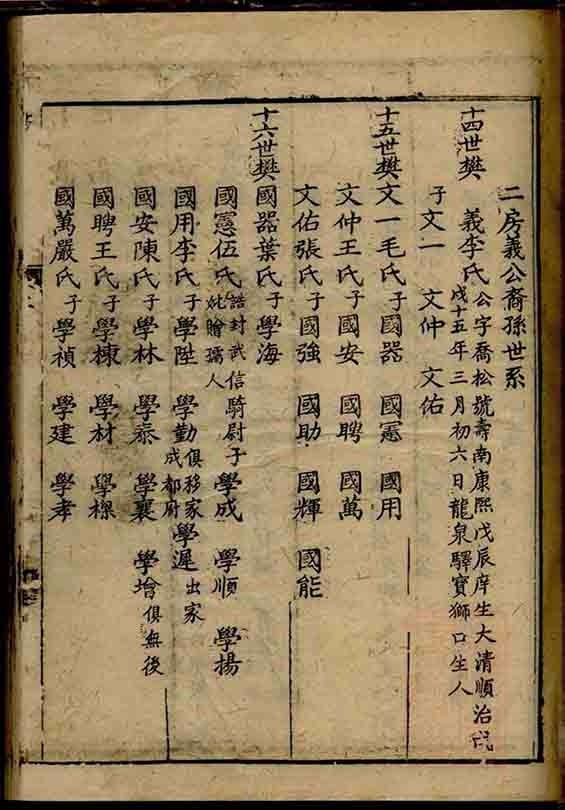 二房義公裔孫世系
十四世樊 義李氏公字喬松號壽南康熙戊辰庠生大清順治
戊十五年三月初六日龍泉驛寶獅口生人
子文一 文仲 文佑
十五世樊文一毛氏子國器 國憲 國用
文仲王氏子國安 國聘 國萬
文佑張氏子國強 國助 國輝 國能
十六世樊國器葉氏子學海
國憲伍氏誥封武信騎尉子學成 學順 學揚
妣贈孺人
國用李氏子學陞 學勤俱移家成都府學遲出家
國安陳氏子學林 學泰 學襄 學增俱無後
國聘王氏子學棟 學材 學樑
國萬嚴氏子學禎 學建 學孝